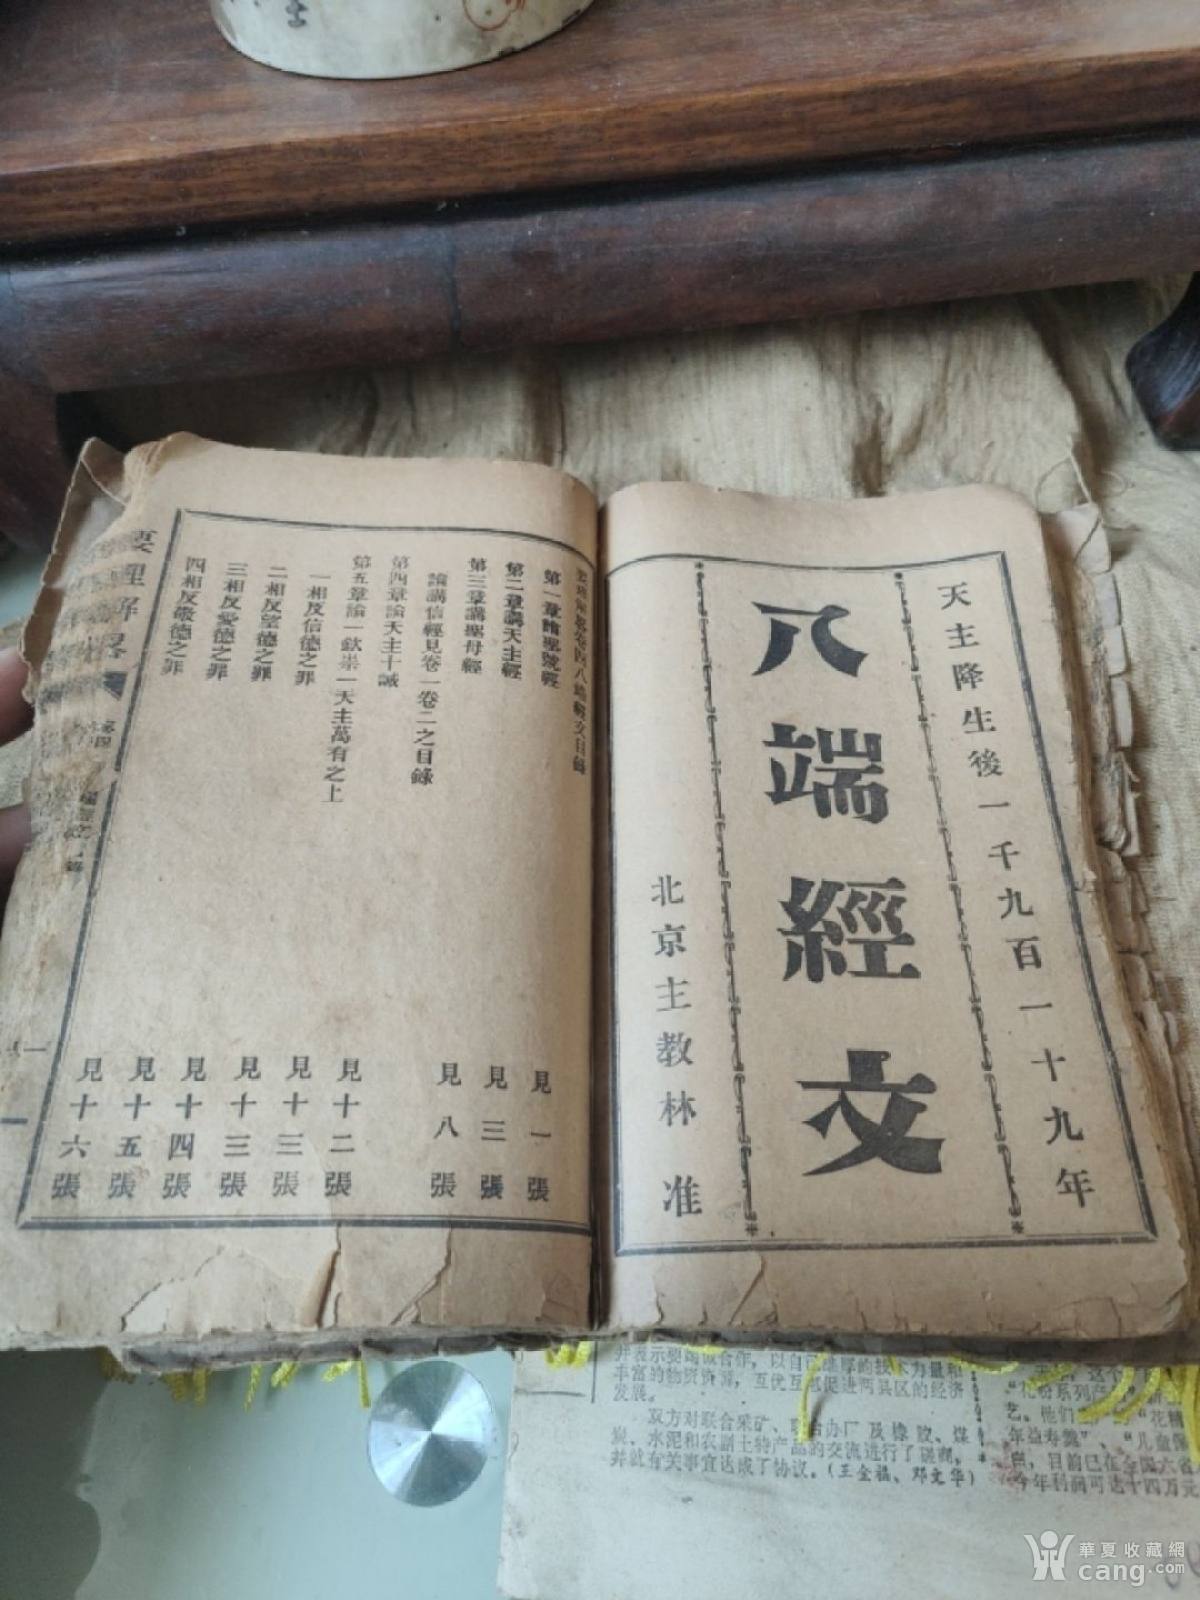 天主降生後一千九百一十九年
八端經文
北京主教林准
要理解畧卷四八端經文目錄
第一章講聖號經 見一張
第二章講天主經 見三張
第三章講聖母經 見八張
論講信經見卷一卷二之目錄
第四章論天主十誡
第五章論一欽崇一天主萬有之上 見十二張
一相反信德之罪 見十三張
二相反望德之罪 見十三張
三相反愛德之罪 見十四張
四相反敬德之罪 見十五張
見十六張
要理解畧
卷四
一
并表示要竭诚合作，以自己雄厚的技术力量和
丰富的物资资源，互优互惠促进两县区的经济
发展。
双方对联合采矿、联合办厂及橡胶、煤
炭、水泥和农副土特产品的交流进行了磋商，
并就有关事宜达成了协议。（王金福、邓文华）
“花粉系列产
艺。他们 “花糖
年益寿 ”、“儿童
目前已在全国六省
今年利润可达十四万元
華夏收藏網
cang.com